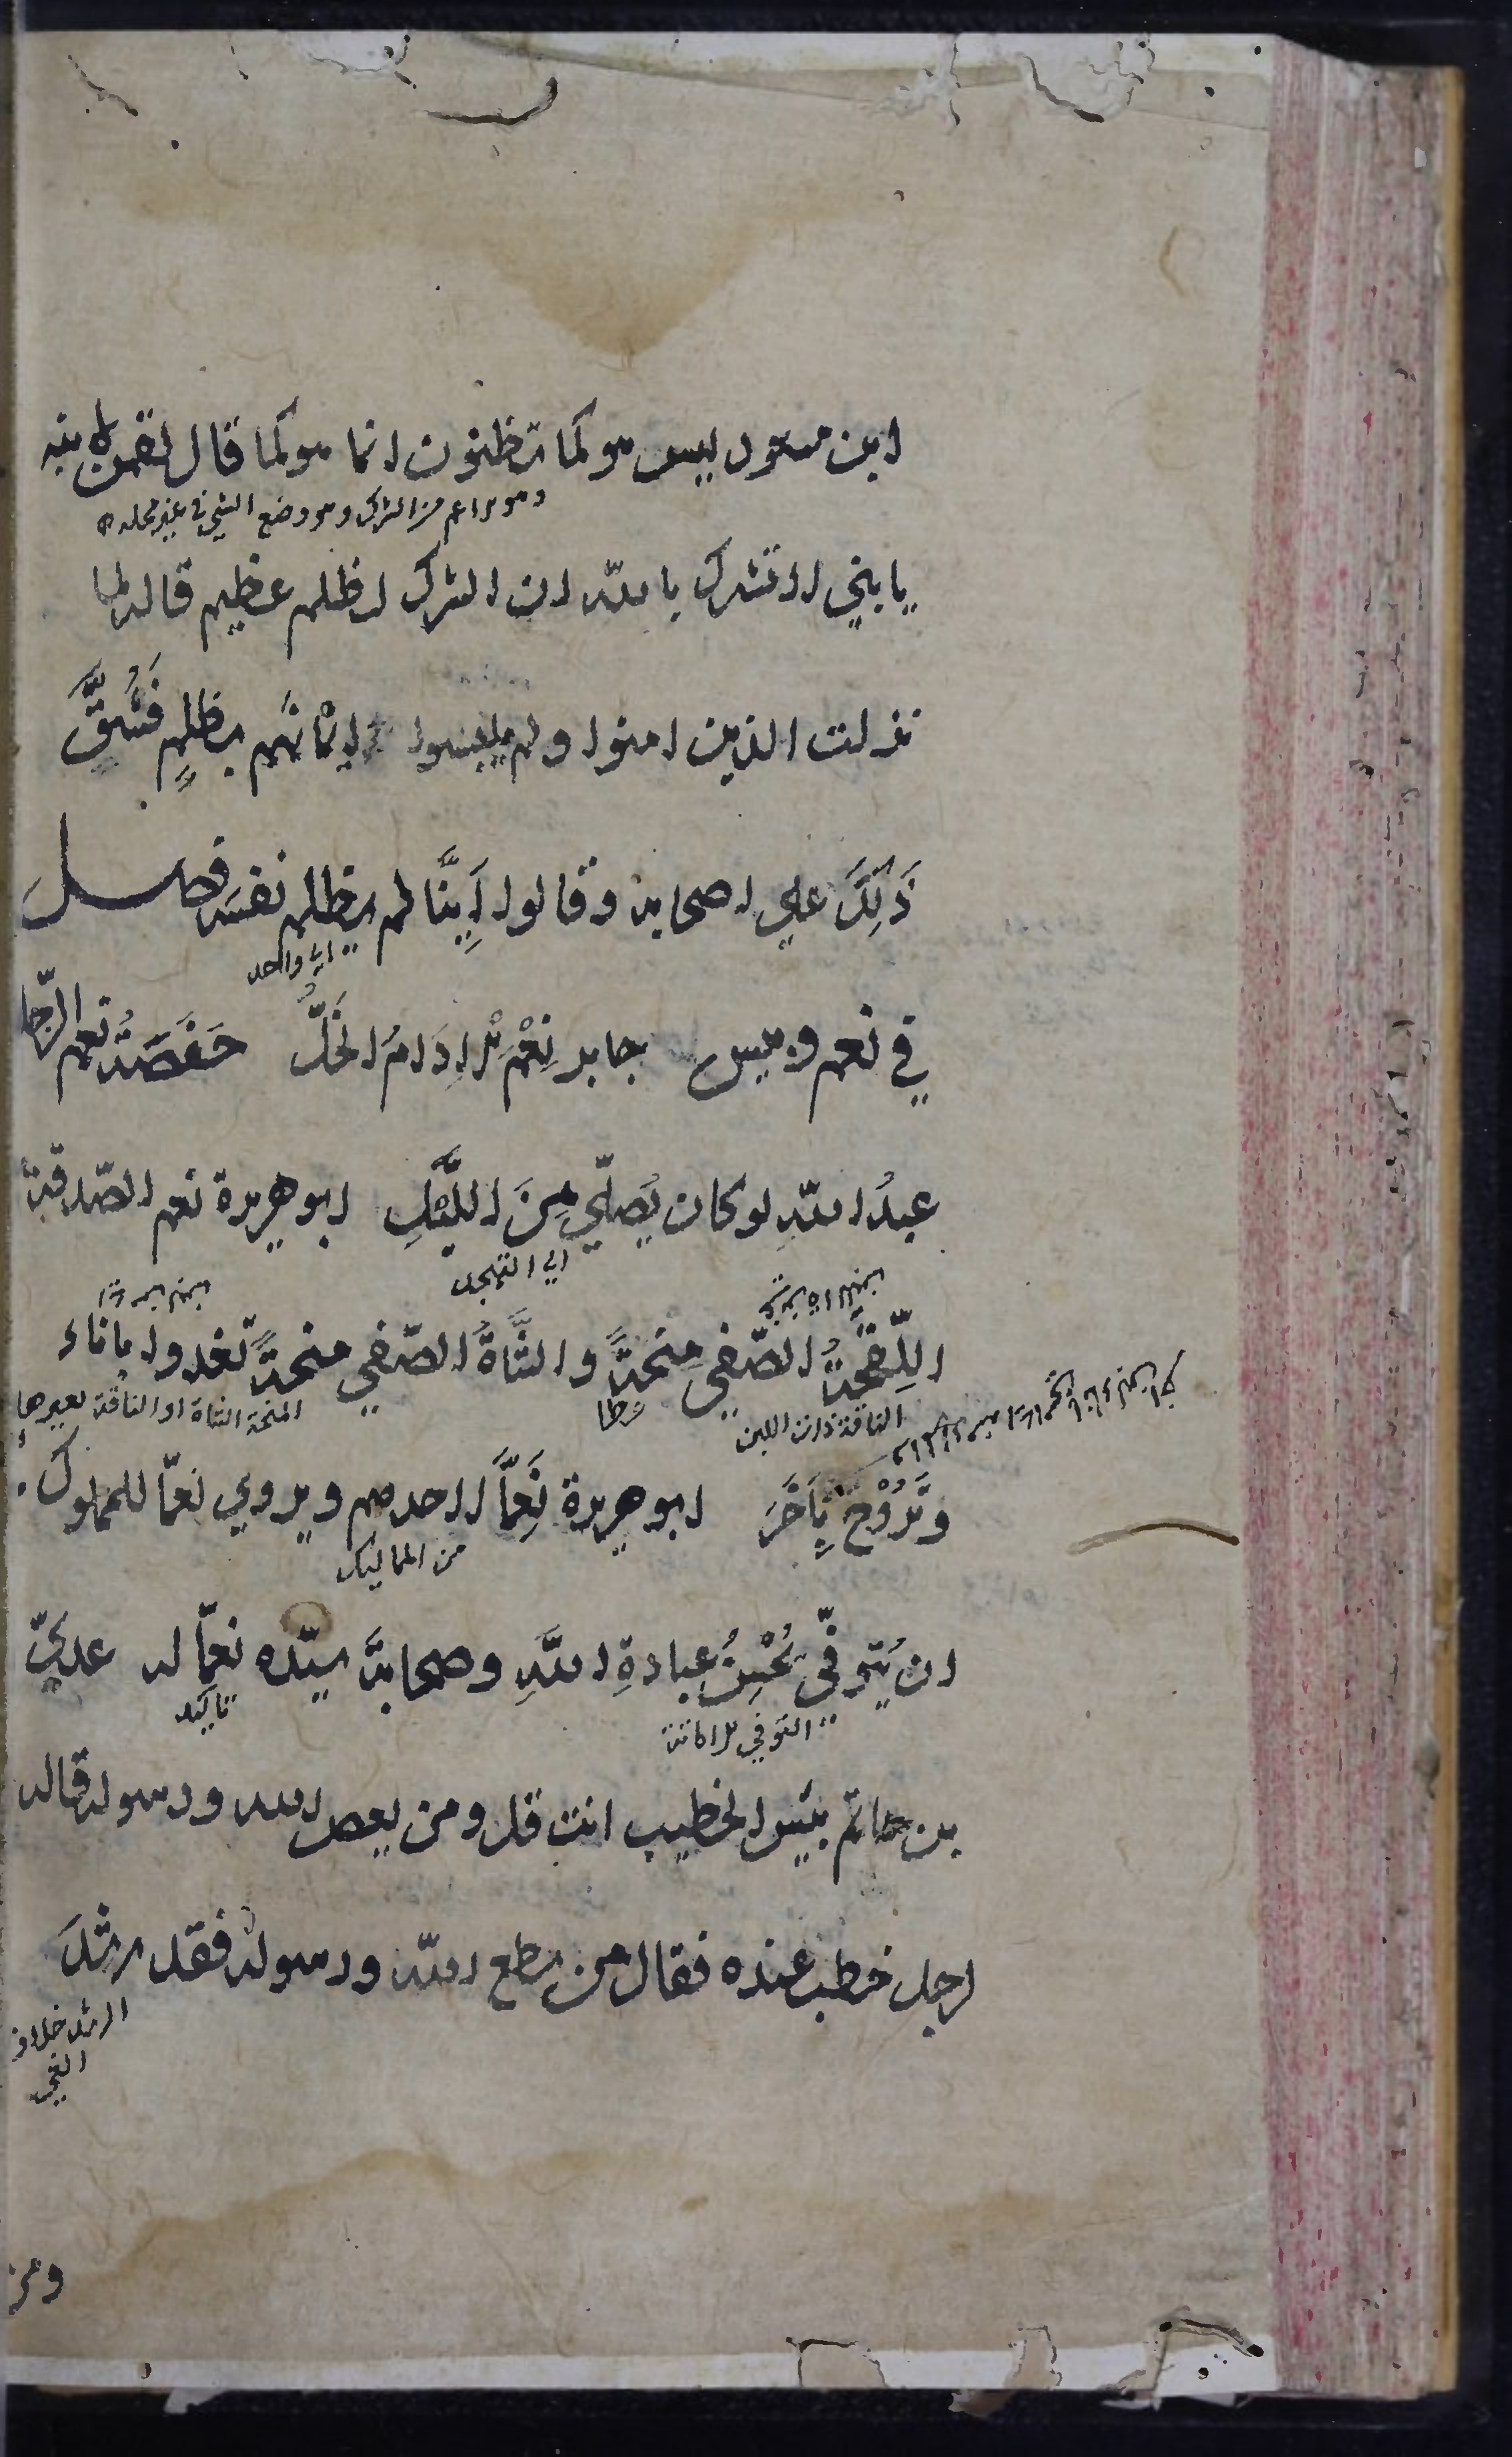 ابن مسعود ليس هو كما تظنون انما هو كما قال لقمن لابنه
وهو اعم من الشرك وهو وضع الشئ في غير محله
يا بني لا تشرك بالله ان الشرك لظلم عظيم قاله لما
نزلت الذين امنوا ولم يلبسوا اِيْمَانَهُم بظلمٍ فَشَقَّ
ذَلِكَ علي اصحابه وقالوا اَيُّنَا لم يظلم نفسَه فصل
اي واحد
في نعم وبيس جابر نِعْمَ الْاِدَامُ الخَلُّ حَفْصَةُ نعم الرّجل
عبدُ اللّهِ لو كان يُصلّي مِنَ اللَّيْلِ ابو هريرة نعم الصّدقة
اي التهجد
اللِّقْحَةُ الصّفي مِنْحَةً والشَّاةُ الصّفي منحةً تغدوا باناء
الناقة ذات اللبن
عطا
المنحة الشاة او الناقة تعيرها
وَتَرُوْحُ بِآخَرَ ابو هريرة نِعِمَّا لاحدهم ويروي نعمّا للمملوك
من المماليك
ان يُتوفّي يُحْسِنُ عبادةِ اللّهِ وصحابةَ سيّده نعِمّا له عديّ
التوفي الاماتة
تاكيد
بن حاتم بئس الخطيب انت قل ومن يعص الله ورسوله قاله
لرجل خطب عنده فقال من يطع اللّه ورسوله فقد رشدَ
الرشد خلاف
الغي
ومن